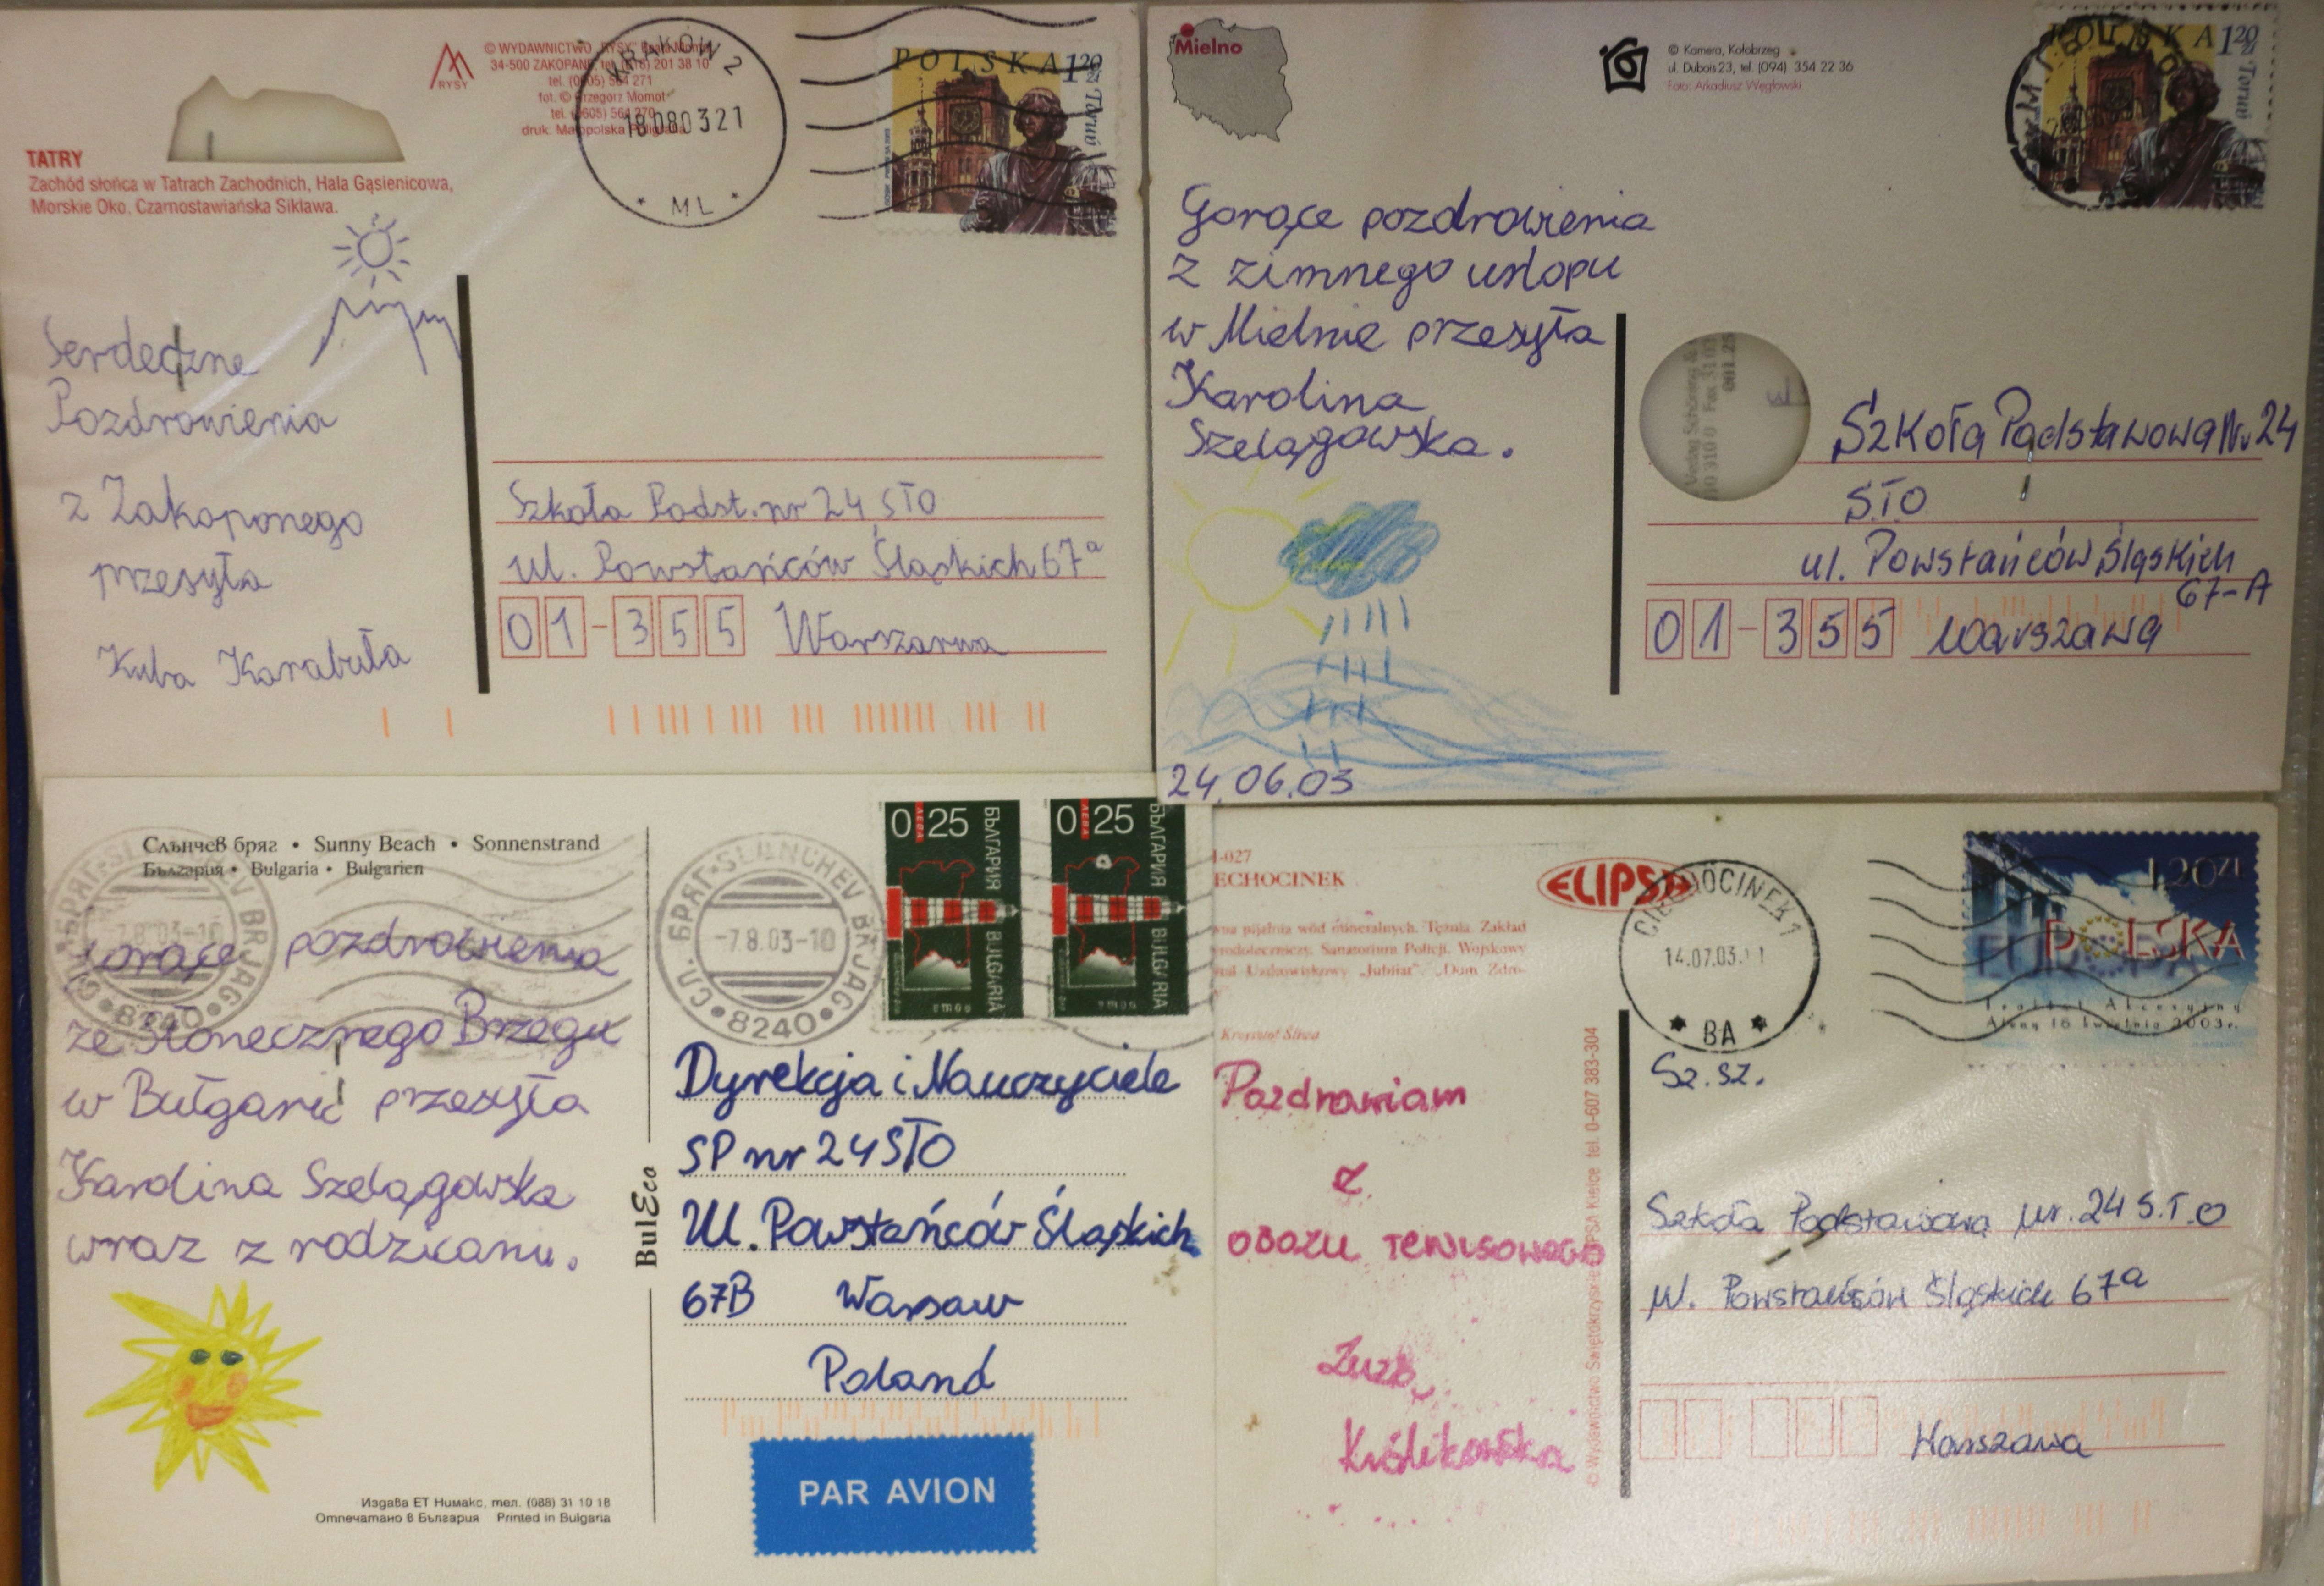 RYSY
© WYDAWNICTWO "RYSY"
34-500 ZAKOPANE, 201 38 10
tel. (0605) 564 271
fot. © Grzegorz Momot
tel. (0605) 564 270
druk: Małopolska Poligrafia
TATRY
Zachód słońca w Tatrach Zachodnich, Hala Gąsienicowa,
Morskie Oko, Czarnostawiańska Siklawa.
KRAKÓW 2
18080321
* ML *
POLSKA 120 zł
Toruń
Serdeczne
Pozdrowienia
z Zakopanego
przesyła
Kuba Karabuła
Szkoła Podst. nr 24 STO
ul. Powstańców Śląskich 67a
01-355 Warszawa
Mielno
© Kamera, Kołobrzeg
ul. Dubois 23, tel. (094) 354 22 36
Foto: Arkadiusz Węgłowski
POLSKA 120 zł
Toruń
Gorące pozdrowienia
z zimnego ustopu
w Mielnie przesyła
Karolina
Szelągowska.
24.06.03
Szkoła Podstawowa Nr 24
STO
ul. Powstańców Śląskich
67-A
01-355 Warszawa
Слънчев бряг • Sunny Beach • Sonnenstrand
България • Bulgaria • Bulgarien
СЛ. БРЯГ-SLANCHEV BRJAG
-7.8.03-10
•8240•
0 ЛЕВА 25
БЪЛГАРИЯ BULGARIA
0 ЛЕВА 25
БЪЛГАРИЯ BULGARIA
Gorące pozdrowienia
ze Słonecznego Brzegu
w Bułgarii przesyła
Karolina Szelągowska
wraz z rodzicami.
BulEco
Dyrekcja i Nauczyciele
SP nr 24 STO
Ul. Powstańców Śląskich
67B Warsaw
Poland
PAR AVION
Издава ЕТ Нимакс, тел. (088) 31 10 18
Отпечатано в България Printed in Bulgaria
I-027
ECHOCINEK
pijalnia wód mineralnych. Tężnia. Zakład
rodoleczniczy. Sanatorium Policji. Wojskowy
Uzdrowiskowy "Jubilat". "Dom Zdro-
Krzysztof Śliwa
ELIPSA
CIECHOCINEK 1
14.07.03
* BA *
1,20 ZŁ
POLSKA
EUROPA
Traktat Akcesyjny
Ateny 16 kwietnia 2003 r.
Pozdrawiam
z
OBOZU TENISOWEGO
Zuza
Królikowska
© Wydawnictwo Świętokrzyskie ELIPSA Kielce tel. 0-607 383-304
Sz.Sz.
Szkoła Podstawowa nr. 24 S.T.O
ul. Powstańców Śląskich 67a
Warszawa